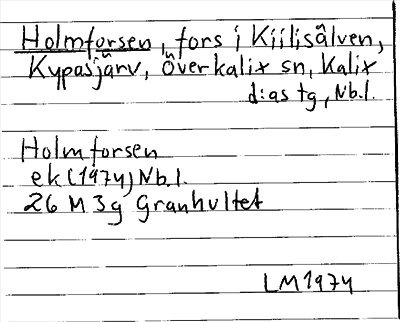 Holmforsen, fors i Kiilisälven,
Kypasjärv, Överkalix sn, Kalix
d:as tg, Nb.l.
Holmforsen
ek (1974) Nb.l.
26 M 3g Granhultet
LM 1974